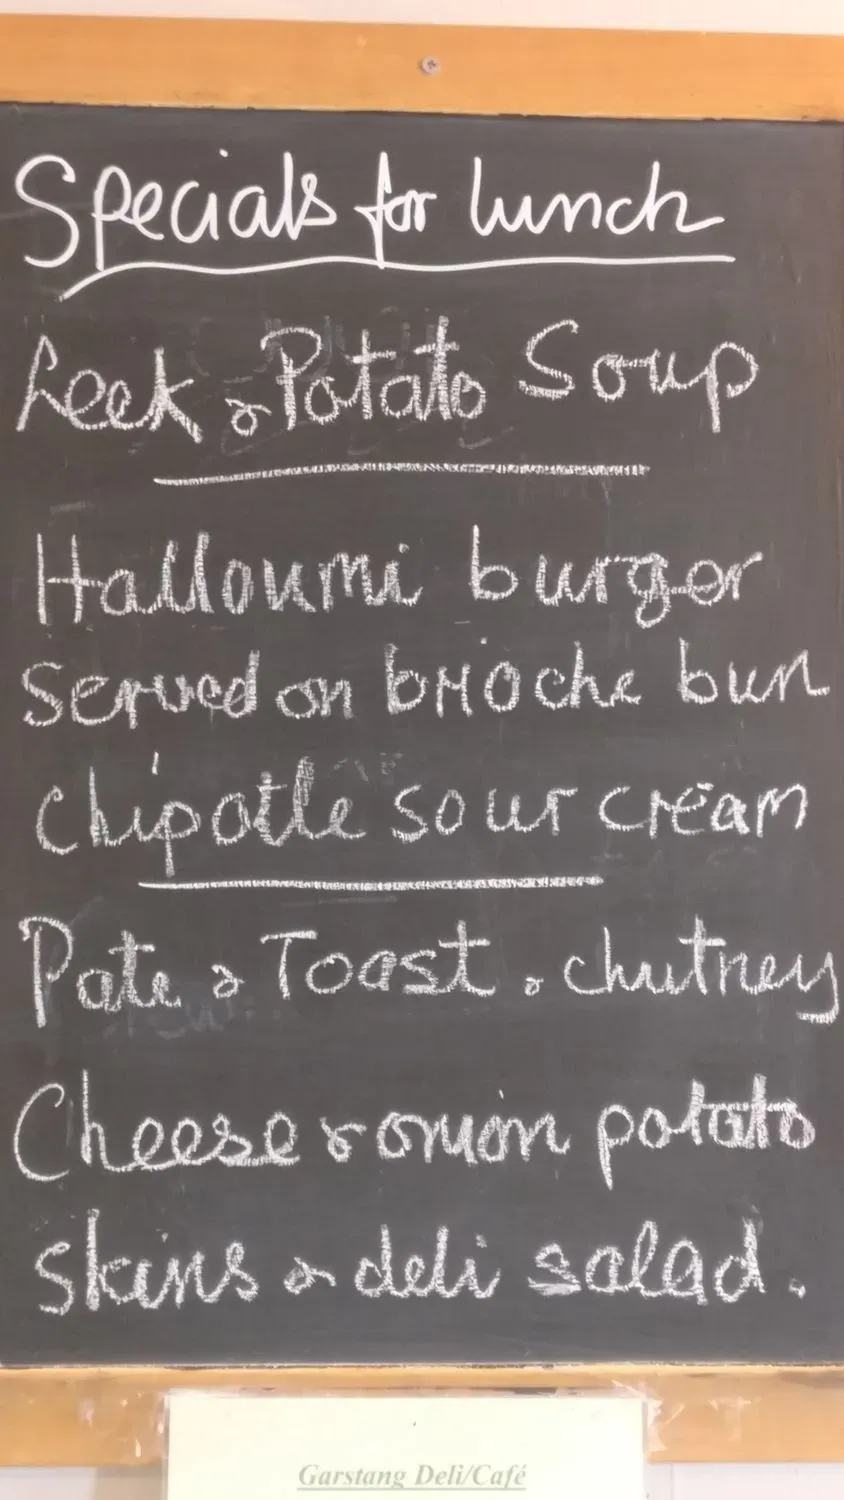 Specials for lunch
Leek & Potato Soup
Halloumi burger
Served on brioche bun
Chipotle sour cream
Pate & Toast & chutney
Cheese & onion potato
skins & deli salad.
Garstang Deli/Café